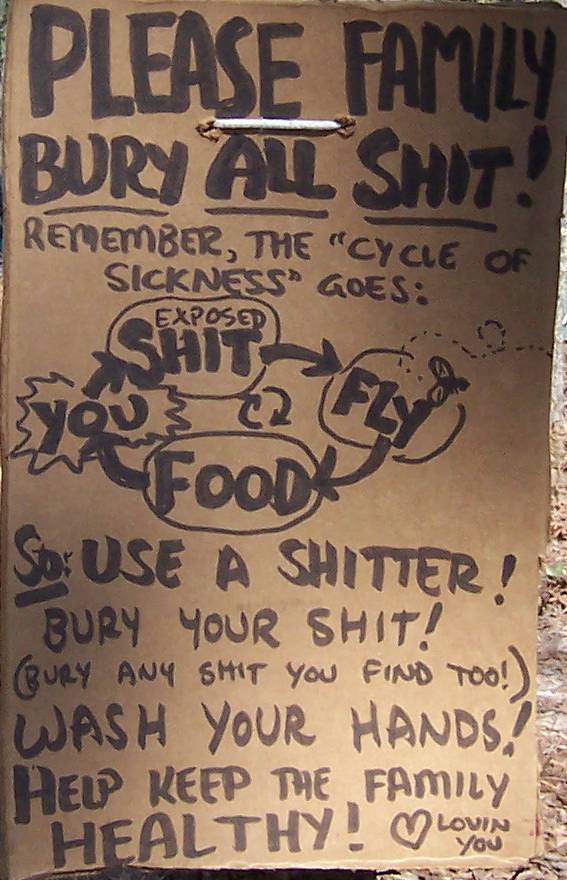 PLEASE FAMILY
BURY ALL SHIT!
REMEMBER, THE "CYCLE OF
SICKNESS" GOES:
EXPOSED
SHIT
FLY
YOU
FOOD
SO: USE A SHITTER!
BURY YOUR SHIT!
(BURY ANY SHIT YOU FIND TOO!)
WASH YOUR HANDS!
HELP KEEP THE FAMILY
HEALTHY! ♡ LOVIN
YOU